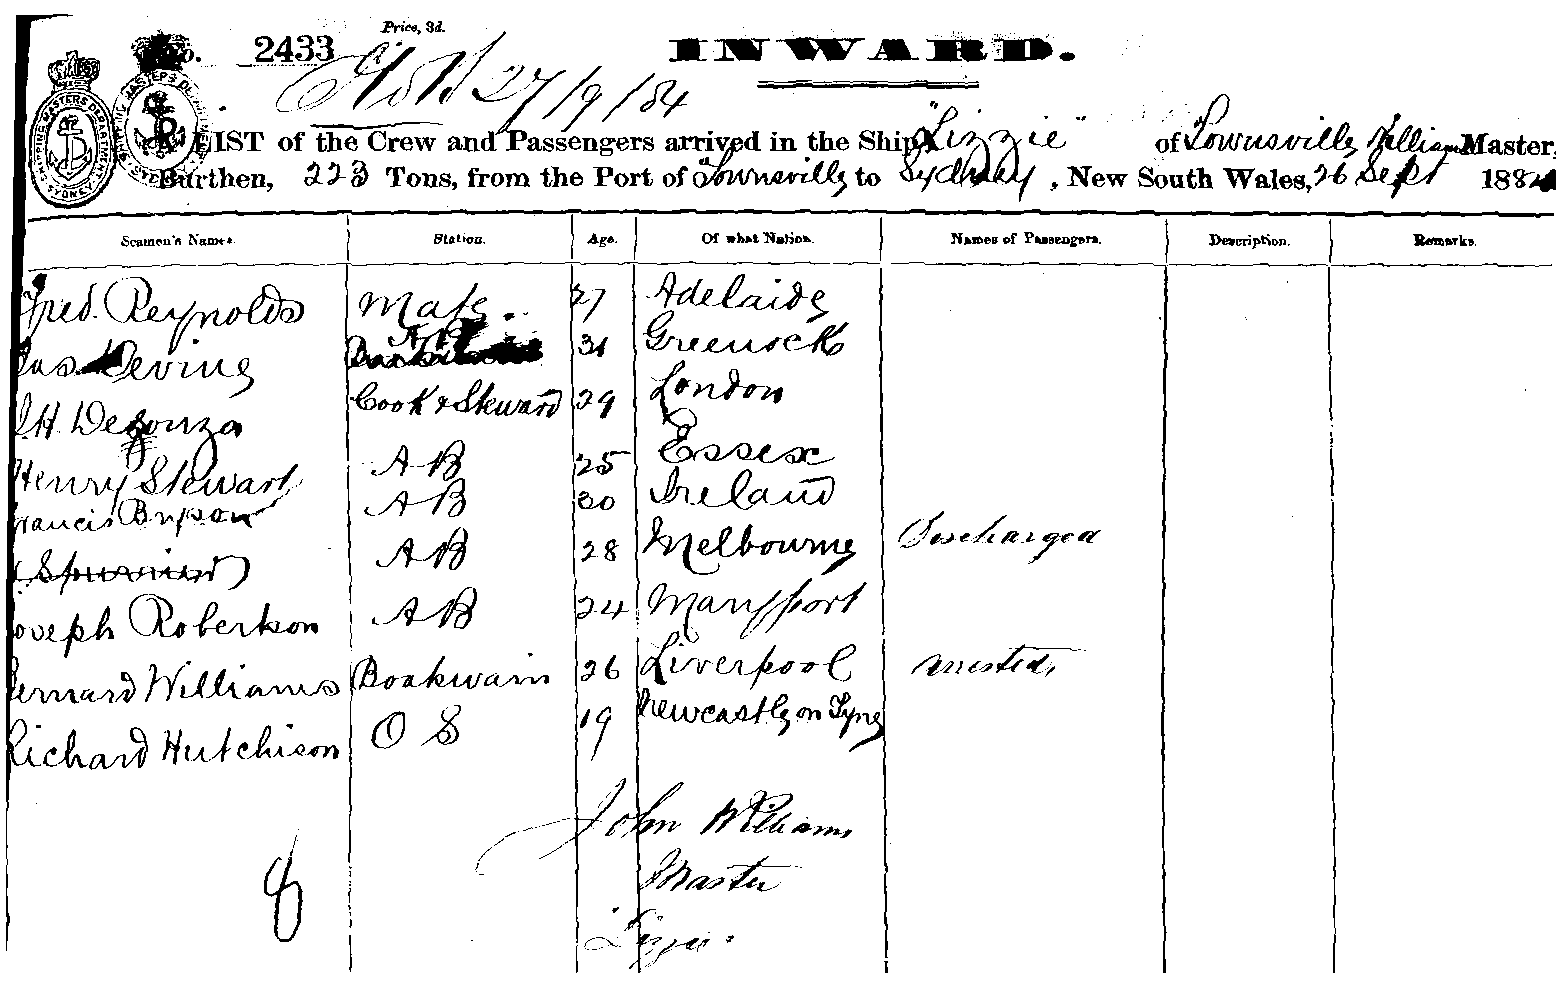 Price, 3d.
No. 2433 INWARD.
27/9/84
LIST of the Crew and Passengers arrived in the Ship "Lizzie" of Townsville, Williams Master,
Burthen, 223 Tons, from the Port of Townsville to Sydney, New South Wales, 26 Sept 1884
Seamen's Names. Station. Age. Of what Nation. Names of Passengers. Description. Remarks.
Fred. Reynolds Mate. 27 Adelaide
Jas Devine AB 31 Greenock
H. Desouza Cook & Steward 29 London
Henry Stewart AB 25 Essex
Francis AB 30 Ireland
AB 28 Melbourne Discharged
Joseph Robertson AB 24 Maryport
Bernard Williams Boatswain 26 Liverpool
Richard Hutchison OS 19 Newcastle on Tyne
John Williams
Master
"Lizzie"
8